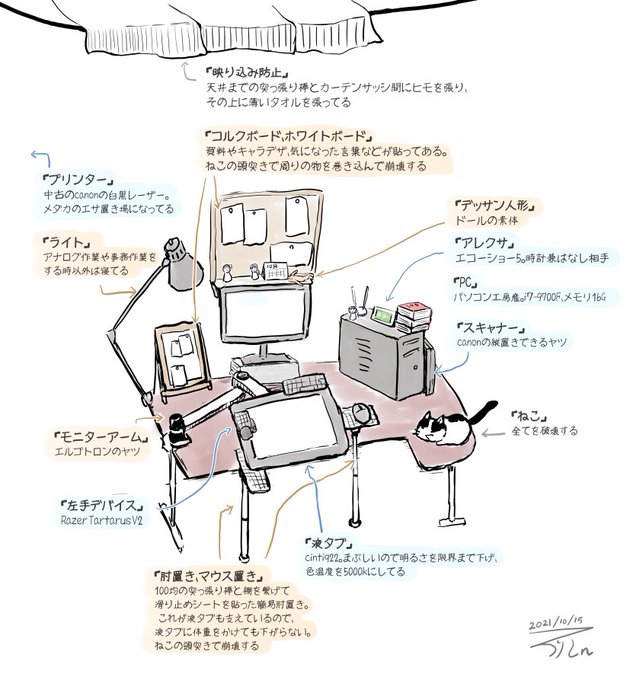 『映り込み防止』
天井までの突っ張り棒とカーテンサッシ間にヒモを張り、
その上に薄いタオルを張ってる
『コルクボード、ホワイトボード』
資料やキャラデザ、気になった言葉などが貼ってある。
ねこの頭突きで周りの物を巻き込んで崩壊する
『プリンター』
中古のcanonの白黒レーザー。
メダカのエサ置き場になってる
『ライト』
アナログ作業や事務作業を
する時以外は寝てる
『デッサン人形』
ドールの素体
『アレクサ』
エコーショー5。時計兼はなし相手
『PC』
パソコン工房産。i7-9700F、メモリ16G
『スキャナー』
canonの縦置きできるヤツ
『ねこ』
全てを破壊する
『モニターアーム』
エルゴトロンのヤツ
『左手デバイス』
Razer Tartarus V2
『液タブ』
cintiq22。まぶしいので明るさを限界まで下げ、
色温度を5000kにしてる
『肘置き、マウス置き』
100均の突っ張り棒と棚を繋げて
滑り止めシートを貼った簡易肘置き。
これが液タブも支えているので、
液タブに体重をかけても下がらない。
ねこの頭突きで崩壊する
10月
2021/10/15